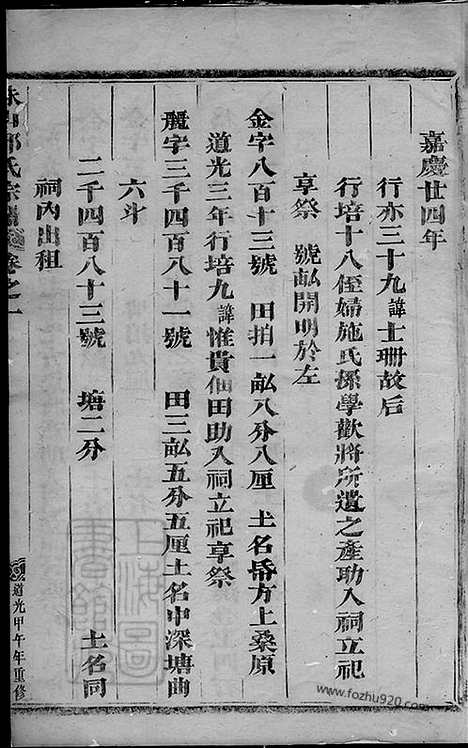 嘉慶廿四年
行亦三十九諱士珊故后
行培十八侄婦施氏孫學歡將所遺之產助入祠立祀
享祭　號畝開明於左
金字八百十三號　田拍一畝八分八厘　土名昏方上桑原
道光三年行培九諱惟貴佃田助入祠立祀享祭
麗字三千四百八十一號　田三畝五分五厘土名中深塘曲
六斗
二千四百八十三號　塘二分　土名同
祠內出租
氏宗譜　卷之一
道光甲午年重修
上海圖書館
www.fozhu920.com